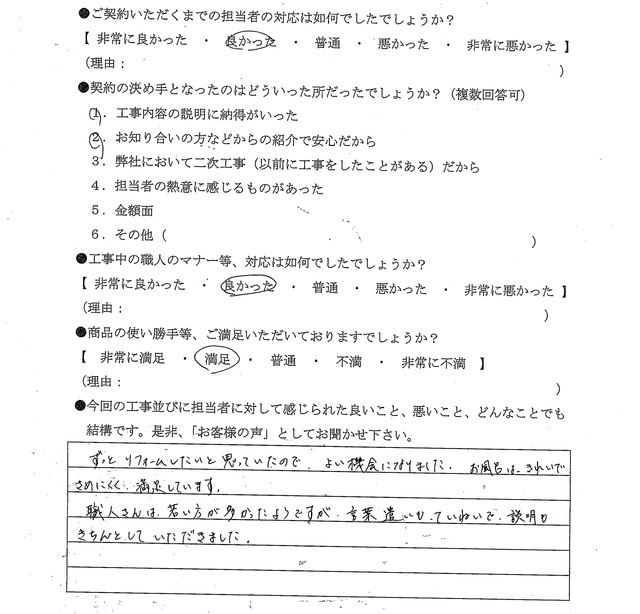 ●ご契約いただくまでの担当者の対応は如何でしたでしょうか？
【 非常に良かった ・ 良かった ・ 普通 ・ 悪かった ・ 非常に悪かった 】
（理由： ）
●契約の決め手となったのはどういった所だったでしょうか？（複数回答可）
１．工事内容の説明に納得がいった
２．お知り合いの方などからの紹介で安心だから
３．弊社において二次工事（以前に工事をしたことがある）だから
４．担当者の熱意に感じるものがあった
５．金額面
６．その他（ ）
●工事中の職人のマナー等、対応は如何でしたでしょうか？
【 非常に良かった ・ 良かった ・ 普通 ・ 悪かった ・ 非常に悪かった 】
（理由： ）
●商品の使い勝手等、ご満足いただいておりますでしょうか？
【 非常に満足 ・ 満足 ・ 普通 ・ 不満 ・ 非常に不満 】
（理由： ）
●今回の工事並びに担当者に対して感じられた良いこと、悪いこと、どんなことでも
結構です。是非、「お客様の声」としてお聞かせ下さい。
ずっとリフォームしたいと思っていたので、よい機会になりました。お風呂は、きれいで
さめにくく、満足しています。
職人さんは、若い方が多かったようですが、言葉遣いも、ていねいで、説明も
きちんとしていただきました。